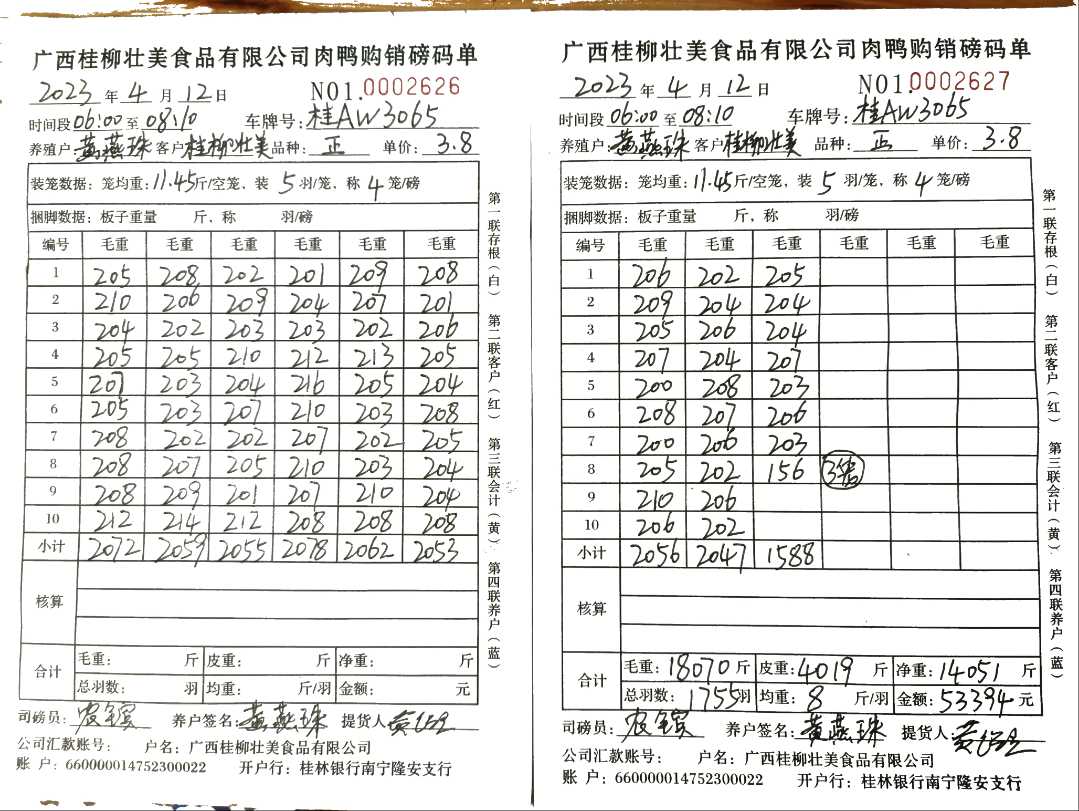 广西桂柳壮美食品有限公司肉鸭购销磅码单
2023 年 4 月 12 日 NO1.0002626
时间段 06:00 至 08:10 车牌号: 桂AW3065
养殖户: 黄燕珠 客户 桂柳壮美 品种: 正 单价: 3.8
装笼数据: 笼均重: 11.45 斤/空笼, 装 5 羽/笼, 称 4 笼/磅
捆脚数据: 板子重量 斤, 称 羽/磅
编号 毛重 毛重 毛重 毛重 毛重 毛重
1 205 208 202 201 209 208
2 210 206 209 204 207 201
3 204 202 203 203 202 206
4 205 205 210 212 213 205
5 207 203 204 216 205 204
6 205 203 207 210 203 208
7 208 202 202 207 202 205
8 208 207 205 210 203 204
9 208 209 201 207 210 204
10 212 214 212 208 208 208
小计 2072 2059 2055 2078 2062 2053
核算
合计 毛重: 斤 皮重: 斤 净重: 斤
总羽数: 羽 均重: 斤/羽 金额: 元
司磅员: 养户签名: 黄燕珠 提货人
公司汇款账号: 户名: 广西桂柳壮美食品有限公司
账 户: 660000014752300022 开户行: 桂林银行南宁隆安支行
第一联存根(白) 第二联客户(红) 第三联会计(黄) 第四联养户(蓝)
广西桂柳壮美食品有限公司肉鸭购销磅码单
2023 年 4 月 12 日 NO1.0002627
时间段 06:00 至 08:10 车牌号: 桂AW3065
养殖户: 黄燕珠 客户 桂柳壮美 品种: 正 单价: 3.8
装笼数据: 笼均重: 11.45 斤/空笼, 装 5 羽/笼, 称 4 笼/磅
捆脚数据: 板子重量 斤, 称 羽/磅
编号 毛重 毛重 毛重 毛重 毛重 毛重
1 206 202 205
2 209 204 204
3 205 206 204
4 207 204 207
5 200 208 203
6 208 207 206
7 200 206 203
8 205 202 156 3笼
9 210 206
10 206 202
小计 2056 2047 1588
核算
合计 毛重: 18070 斤 皮重: 4019 斤 净重: 14051 斤
总羽数: 1755 羽 均重: 8 斤/羽 金额: 53394 元
司磅员: 养户签名: 黄燕珠 提货人:
公司汇款账号: 户名: 广西桂柳壮美食品有限公司
账 户: 660000014752300022 开户行: 桂林银行南宁隆安支行
第一联存根(白) 第二联客户(红) 第三联会计(黄) 第四联养户(蓝)